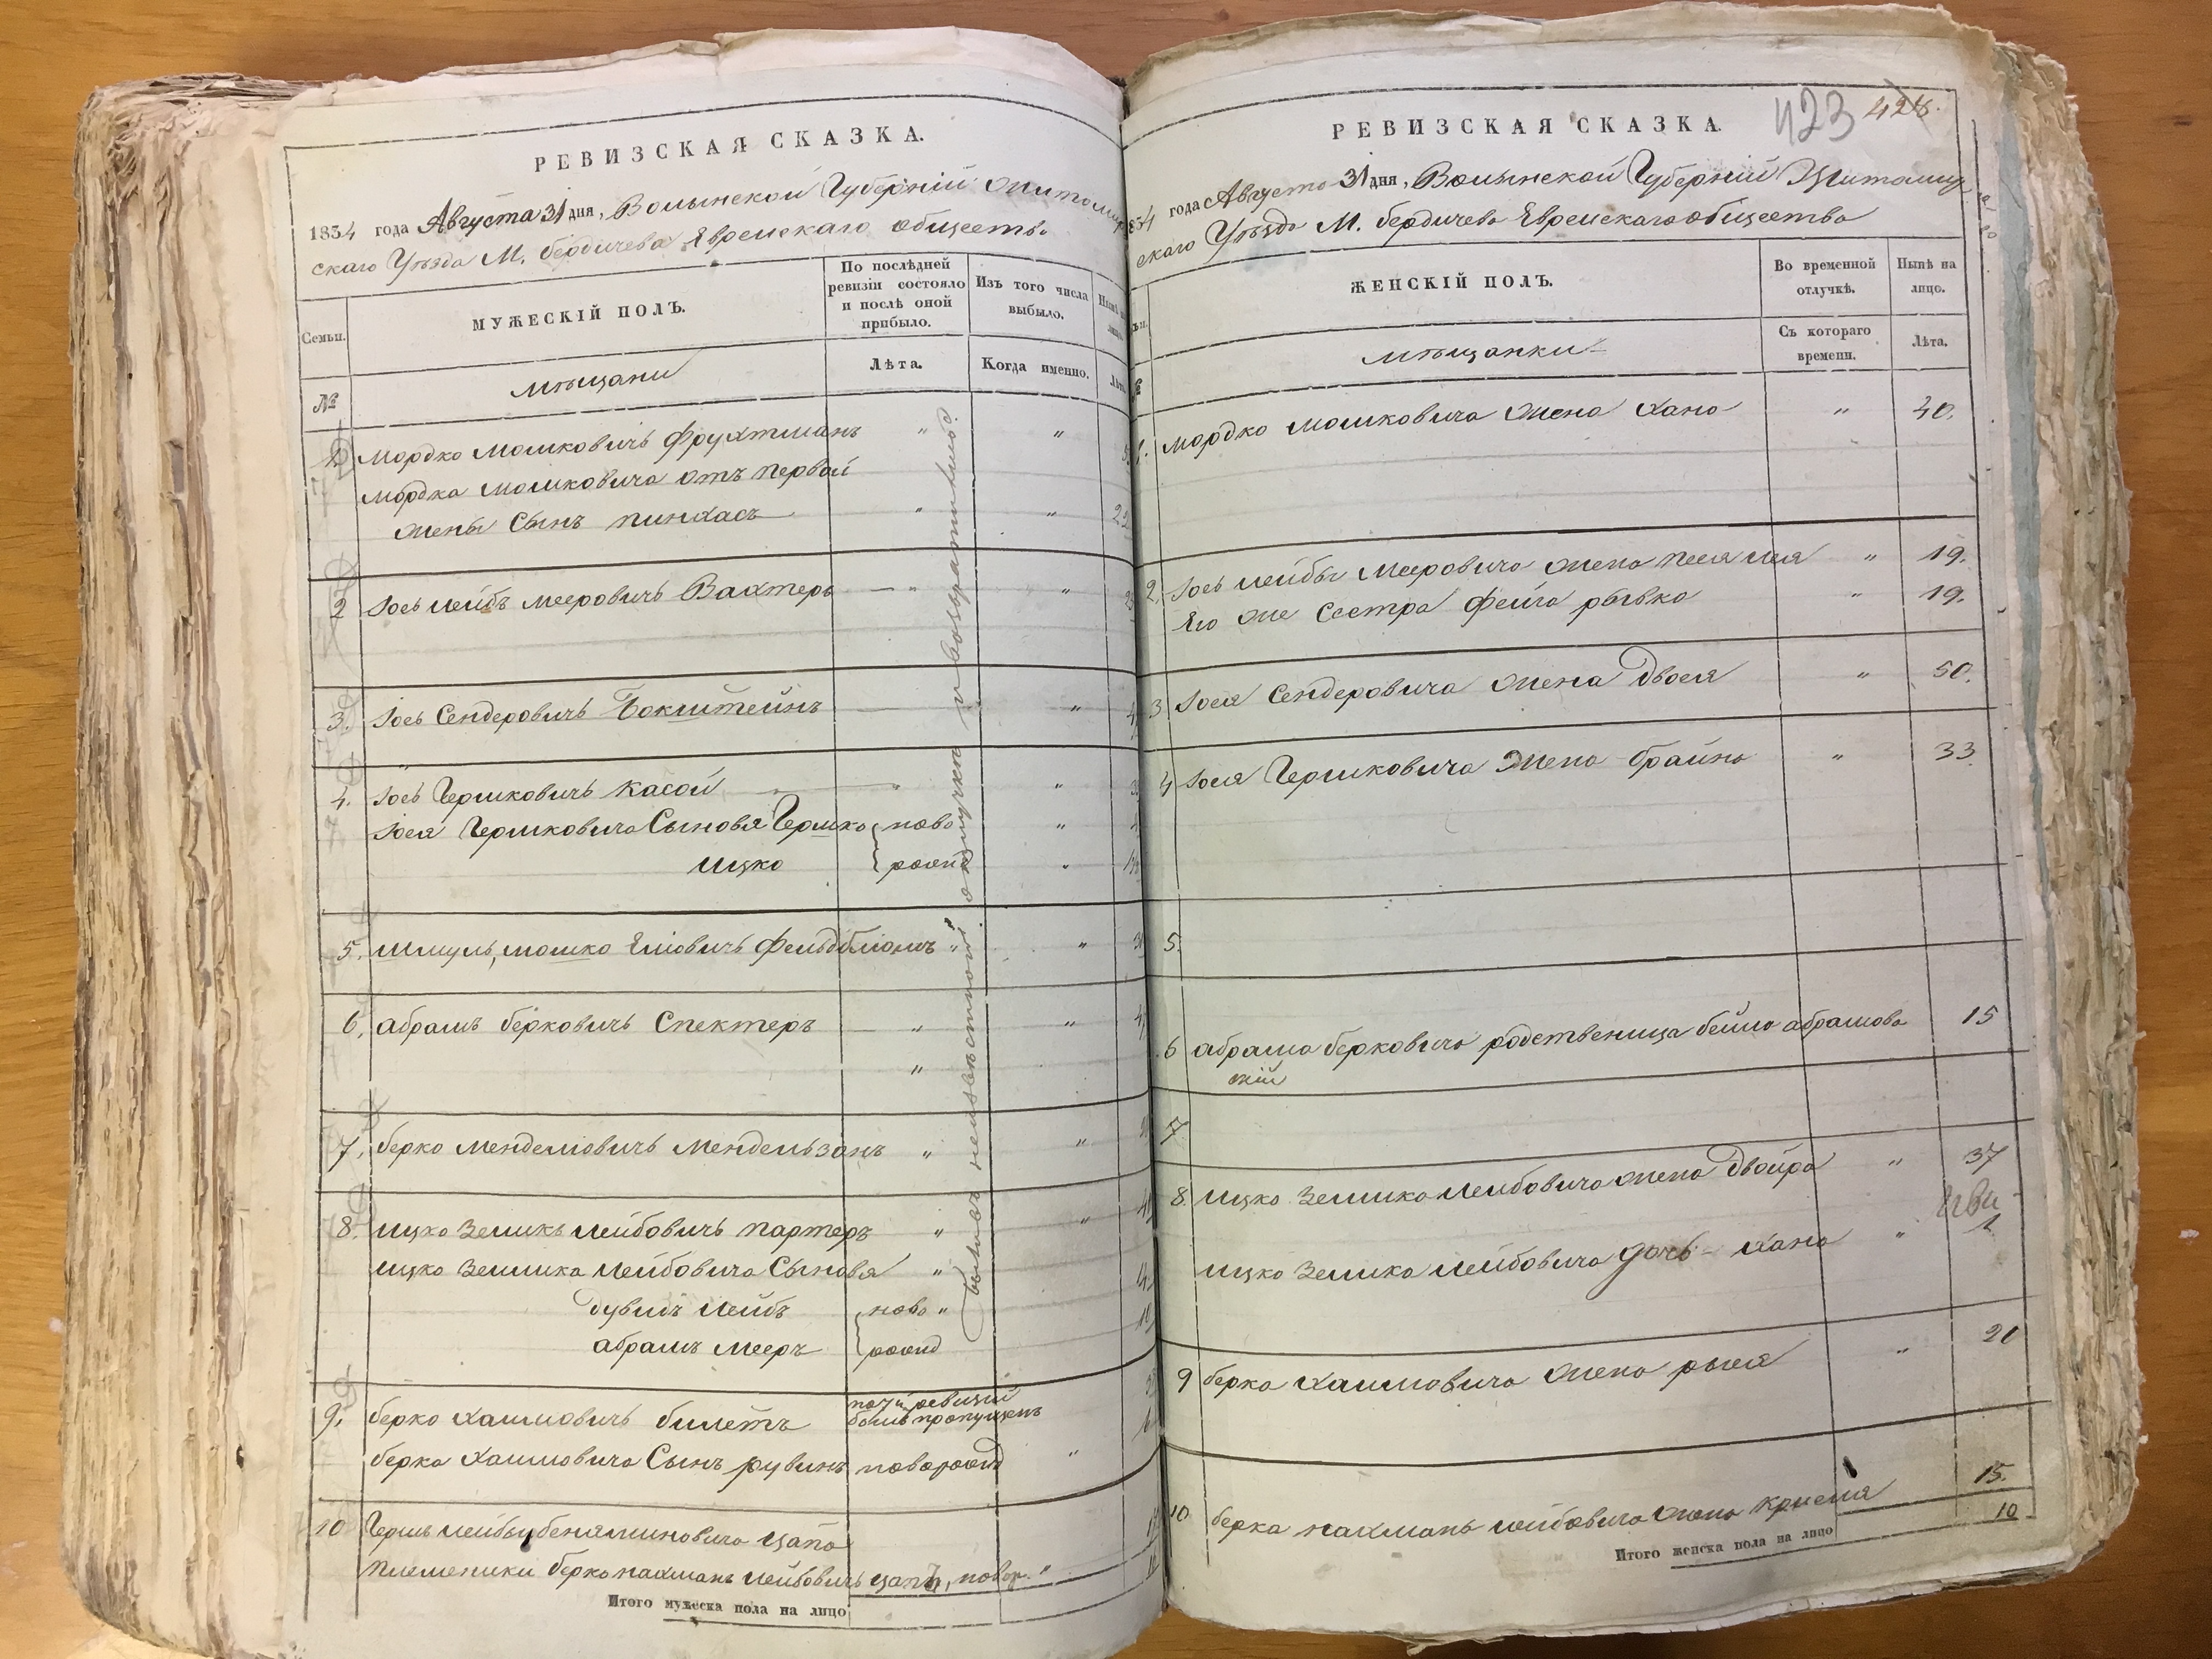 РЕВИЗСКАЯ СКАЗКА.
1834 года Августа 31 дня, Волынской Губерній Житомир
скаго Уѣзда М. бердичева Еврейскаго обществ.
Семьи.
МУЖЕСКІЙ ПОЛЪ.
По послѣдней ревизіи состояло и послѣ оной прибыло.
Изъ того числа выбыло.
№
мѣщани
Лѣта.
Когда именно.
1. мордко мошковичъ фрухтманъ " "
мордка мошковича отъ первой
жены Сынъ пинхасъ " " 22
2 Іось лейбъ мееровичъ Вахтеръ " "
3. Іось Сендеровичъ Бокштейнъ "
4. Іось Гершковичъ Касой " "
Іося Гершковича Сыновя Гершко ново "
ицко рожд "
5. шмуль, мошко Еліовичъ фельдблюмъ " "
6. абрамъ берковичъ Спектеръ " "
"
7. берко менделіовичъ мендельзонъ " "
8. ицко зеликъ лейбовичъ партеръ " "
ицко зелика лейбовича Сыновя "
дувидъ лейбъ ново "
абрамъ мееръ рожд
9. берко хаимовичъ билетъ по 7й ревизій былъ пропущенъ
берка хаимовича Сынъ рувинъ новорожд "
10 Гершъ лейбы беняминовича цапа
племеники берко нахманъ лейбовичъ цапъ, новор. "
Итого мужеска пола на лицо
въ неизвѣстной отлучки и
РЕВИЗСКАЯ СКАЗКА.
423 428.
834 года Августа 31 дня, Волынской Губерній Житомир
скаго Уѣзда М. бердичева Еврейскаго общества
ЖЕНСКІЙ ПОЛЪ.
Во временной отлучкѣ.
Нынѣ на лицо.
мѣщанки
Съ котораго времени.
Лѣта.
1. мордко мошковича жена хана " 40.
2. Іось лейбы мееровича жена песя лея " 19.
Его же сестра фейга рывка " 19.
3 Іося Сендеровича жена двося " 50.
4 Іося Гершковича жена брайна " 33
5.
6 абрама берковича родственица бейла абрамова 15
7
8. ицко зелика лейбовича жена двойра " 37
ицко зелика лейбовича дочь хана " 1
9 берка хаимовича жена рыся " 20
10. берка нахмань лейбовича жена крися 15.
Итого женска пола на лицо 10